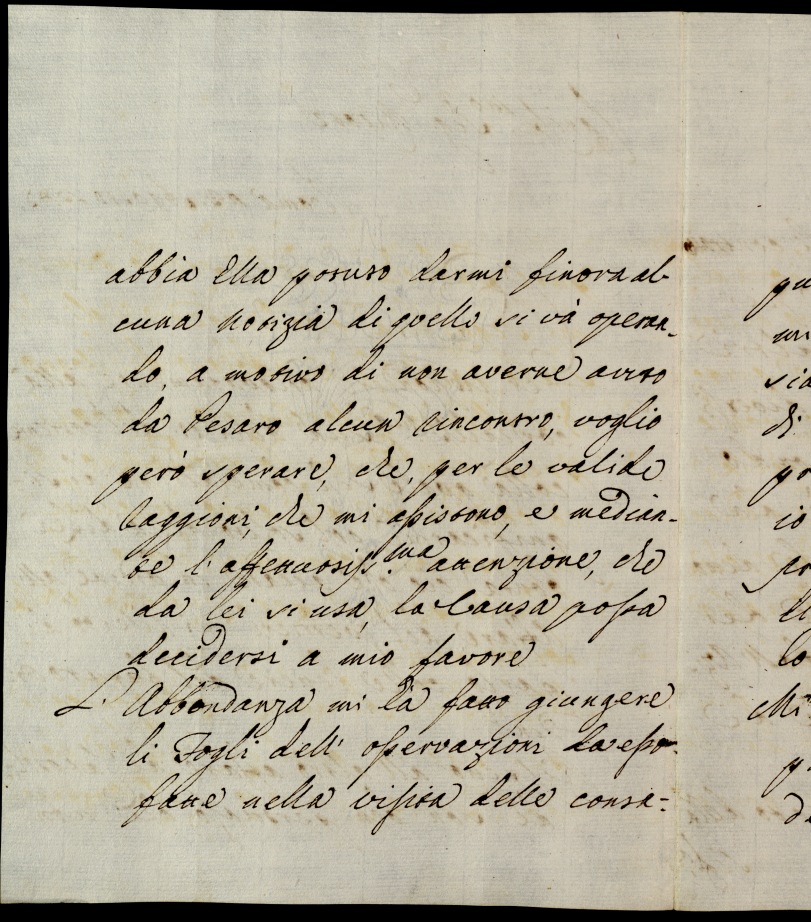 abbia Ella potuto darmi finora al-
cuna notizia di quello si và operan-
do, a motivo di non averne avuto
da Pesaro alcun rincontro, voglio
però sperare, che, per le valide
raggioni, che mi assistono, e median-
te l'affettuosiss.ma attenzione, che
da lei si usa, la Causa possa
decidersi a mio favore
L'Abbondanza mi hà fatto giungere
li Fogli dell' osservazioni da esso
fatte nella visita delle